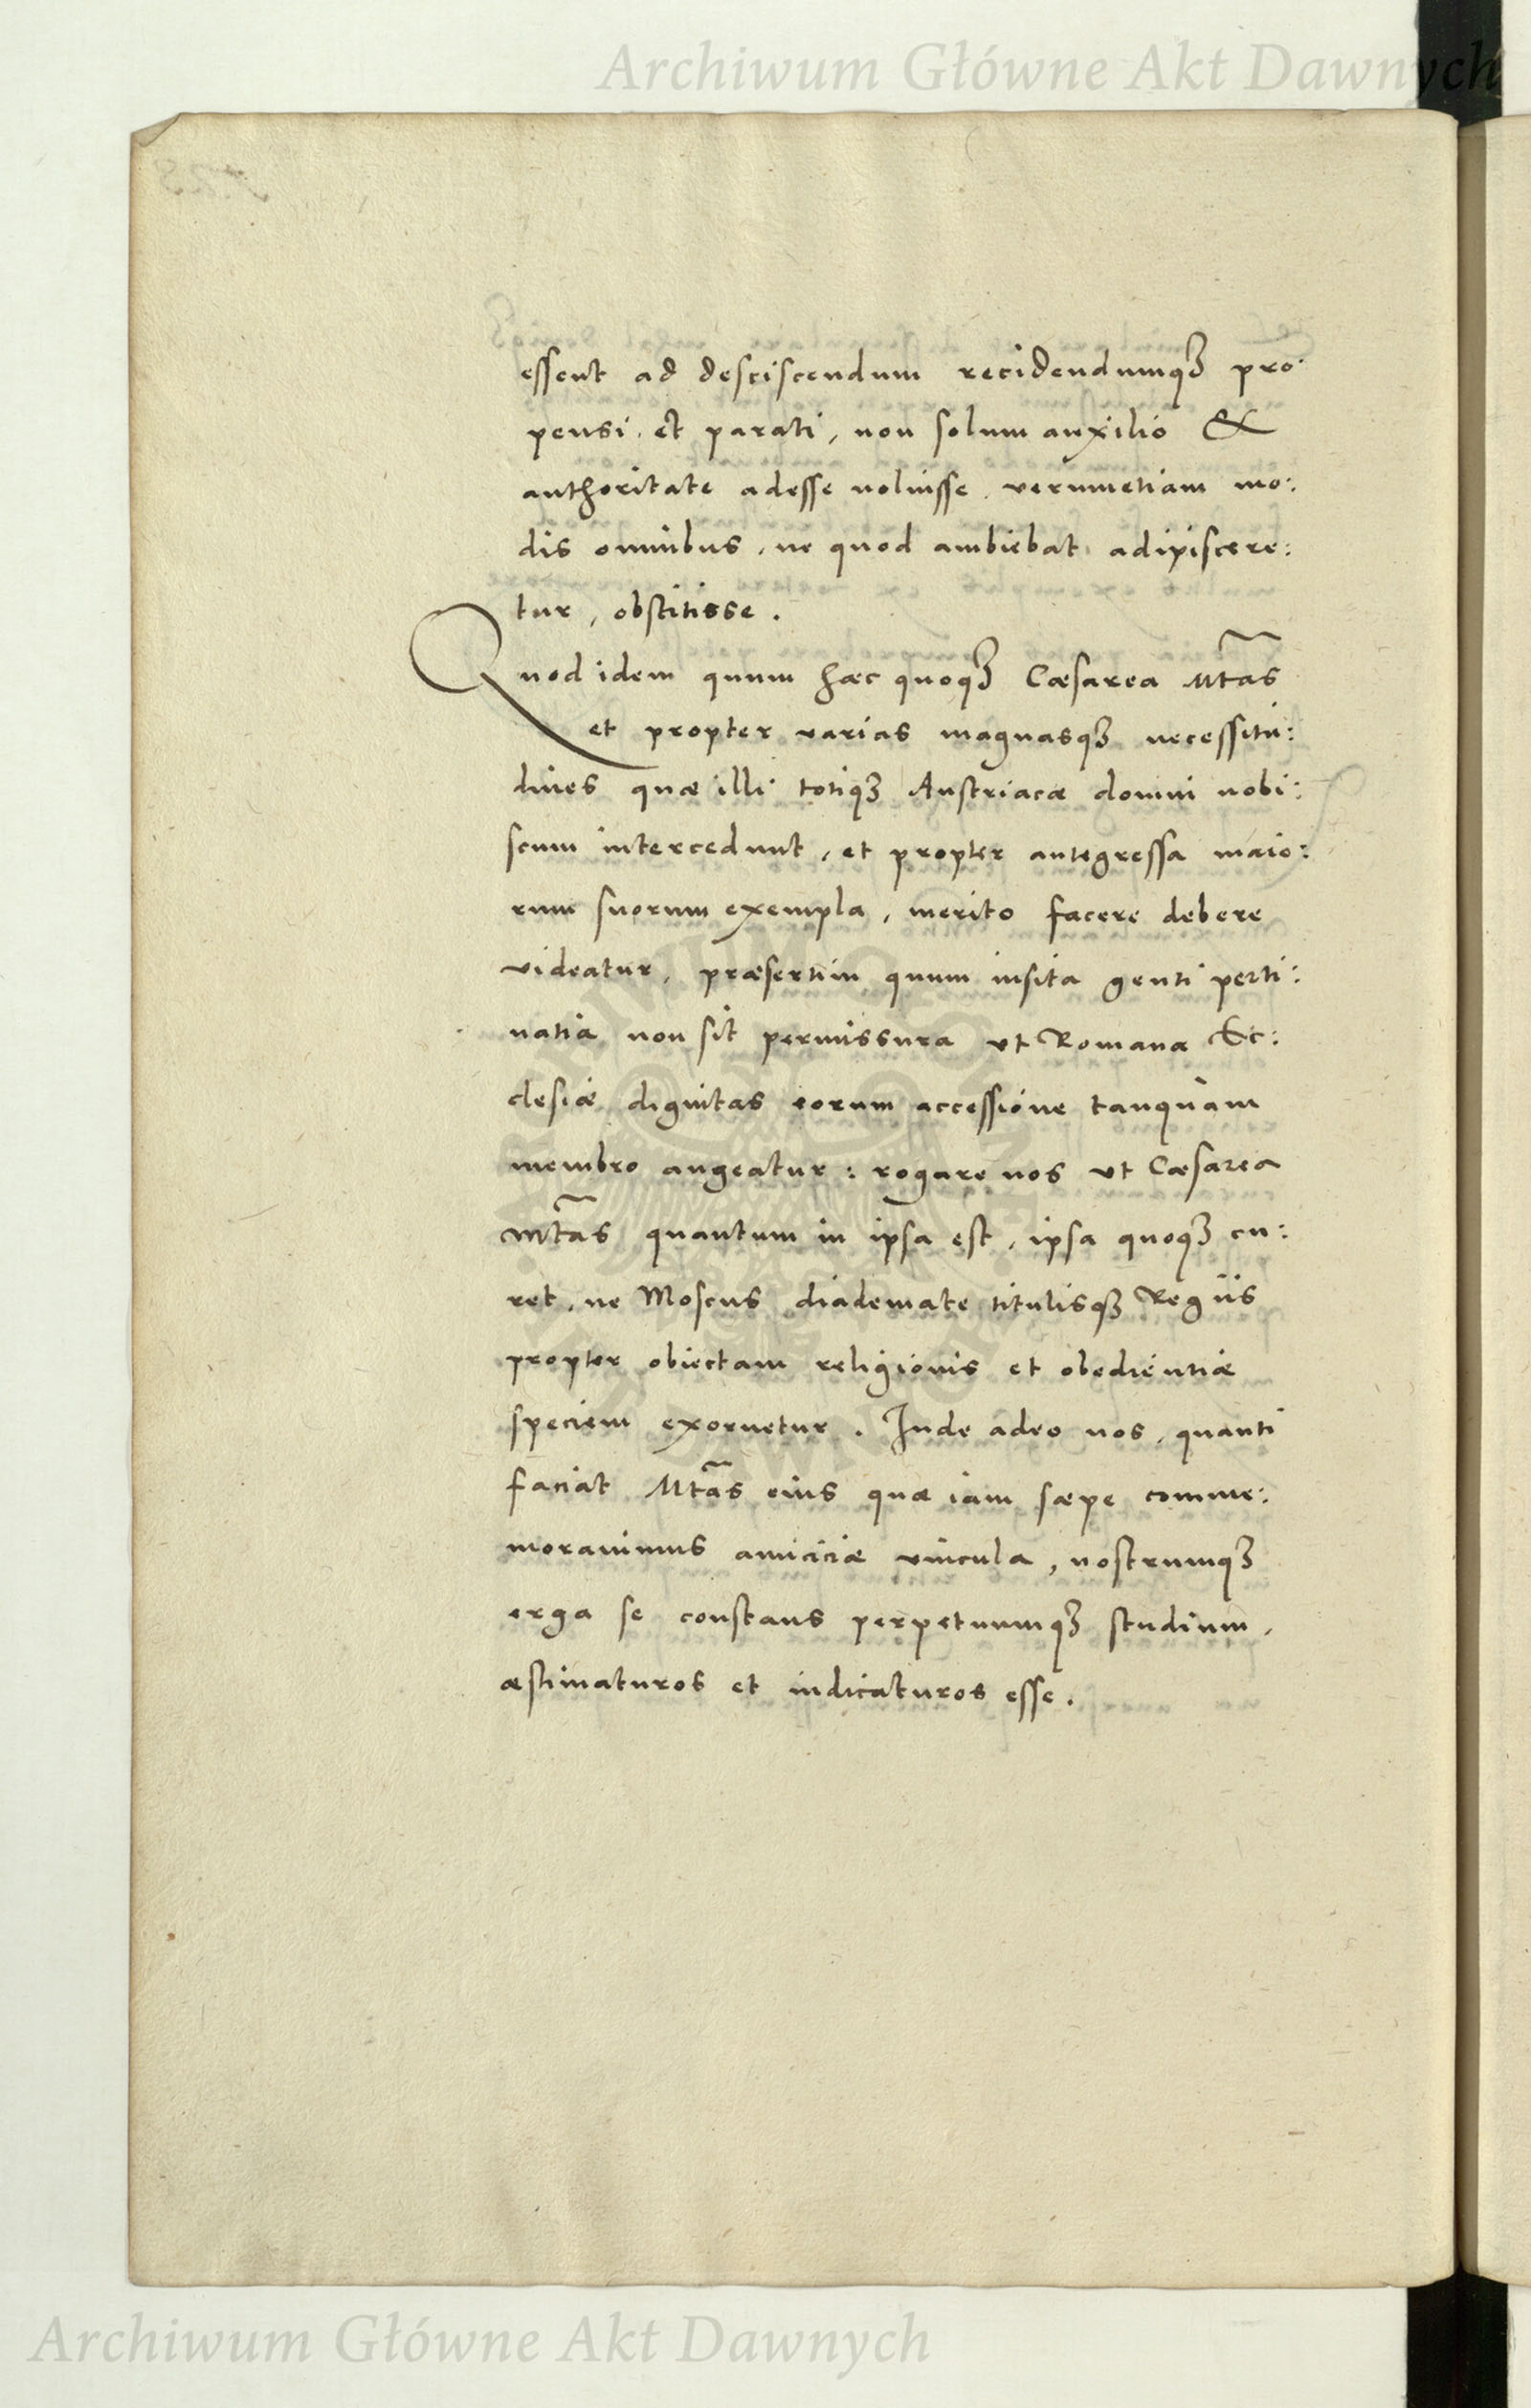 Archiwum Główne Akt Dawnych
essent ad desciscendum recidendumqꝫ pro
pensi et parati, non solum auxilio &
authoritate adesse noluisse, verumetiam mo:
dis omnibus, ne quod ambiebat adipiscere:
tur, obstitisse.
Quod idem quum hæc quoqꝫ Cæsarea Mtas
et propter varias magnasqꝫ necessitu:
dines quæ illi totiqꝫ Austriacæ domui nobi:
scum intercedunt, et propter antegressa maio:
rum suorum exempla, merito facere debere
videatur, præsertim quum insita genti perti:
natia non sit permissura ut Romanæ Ec:
clesiæ dignitas eorum accessione tanquàm
membro augeatur: rogare nos ut Cæsarea
Mtas quantum in ipsa est, ipsa quoqꝫ cu:
ret, ne Moscus diademate titulisqꝫ Regiis
propter obiectam religionis et obedientiæ
speciem exornetur. Inde adeo nos, quanti
faciat Mtas eius quæ iam sæpe comme:
morauimus amiciciæ vincula, nostrumqꝫ
erga se constans perpetuumqꝫ studium,
æstimaturos et iudicaturos esse.
Archiwum Główne Akt Dawnych